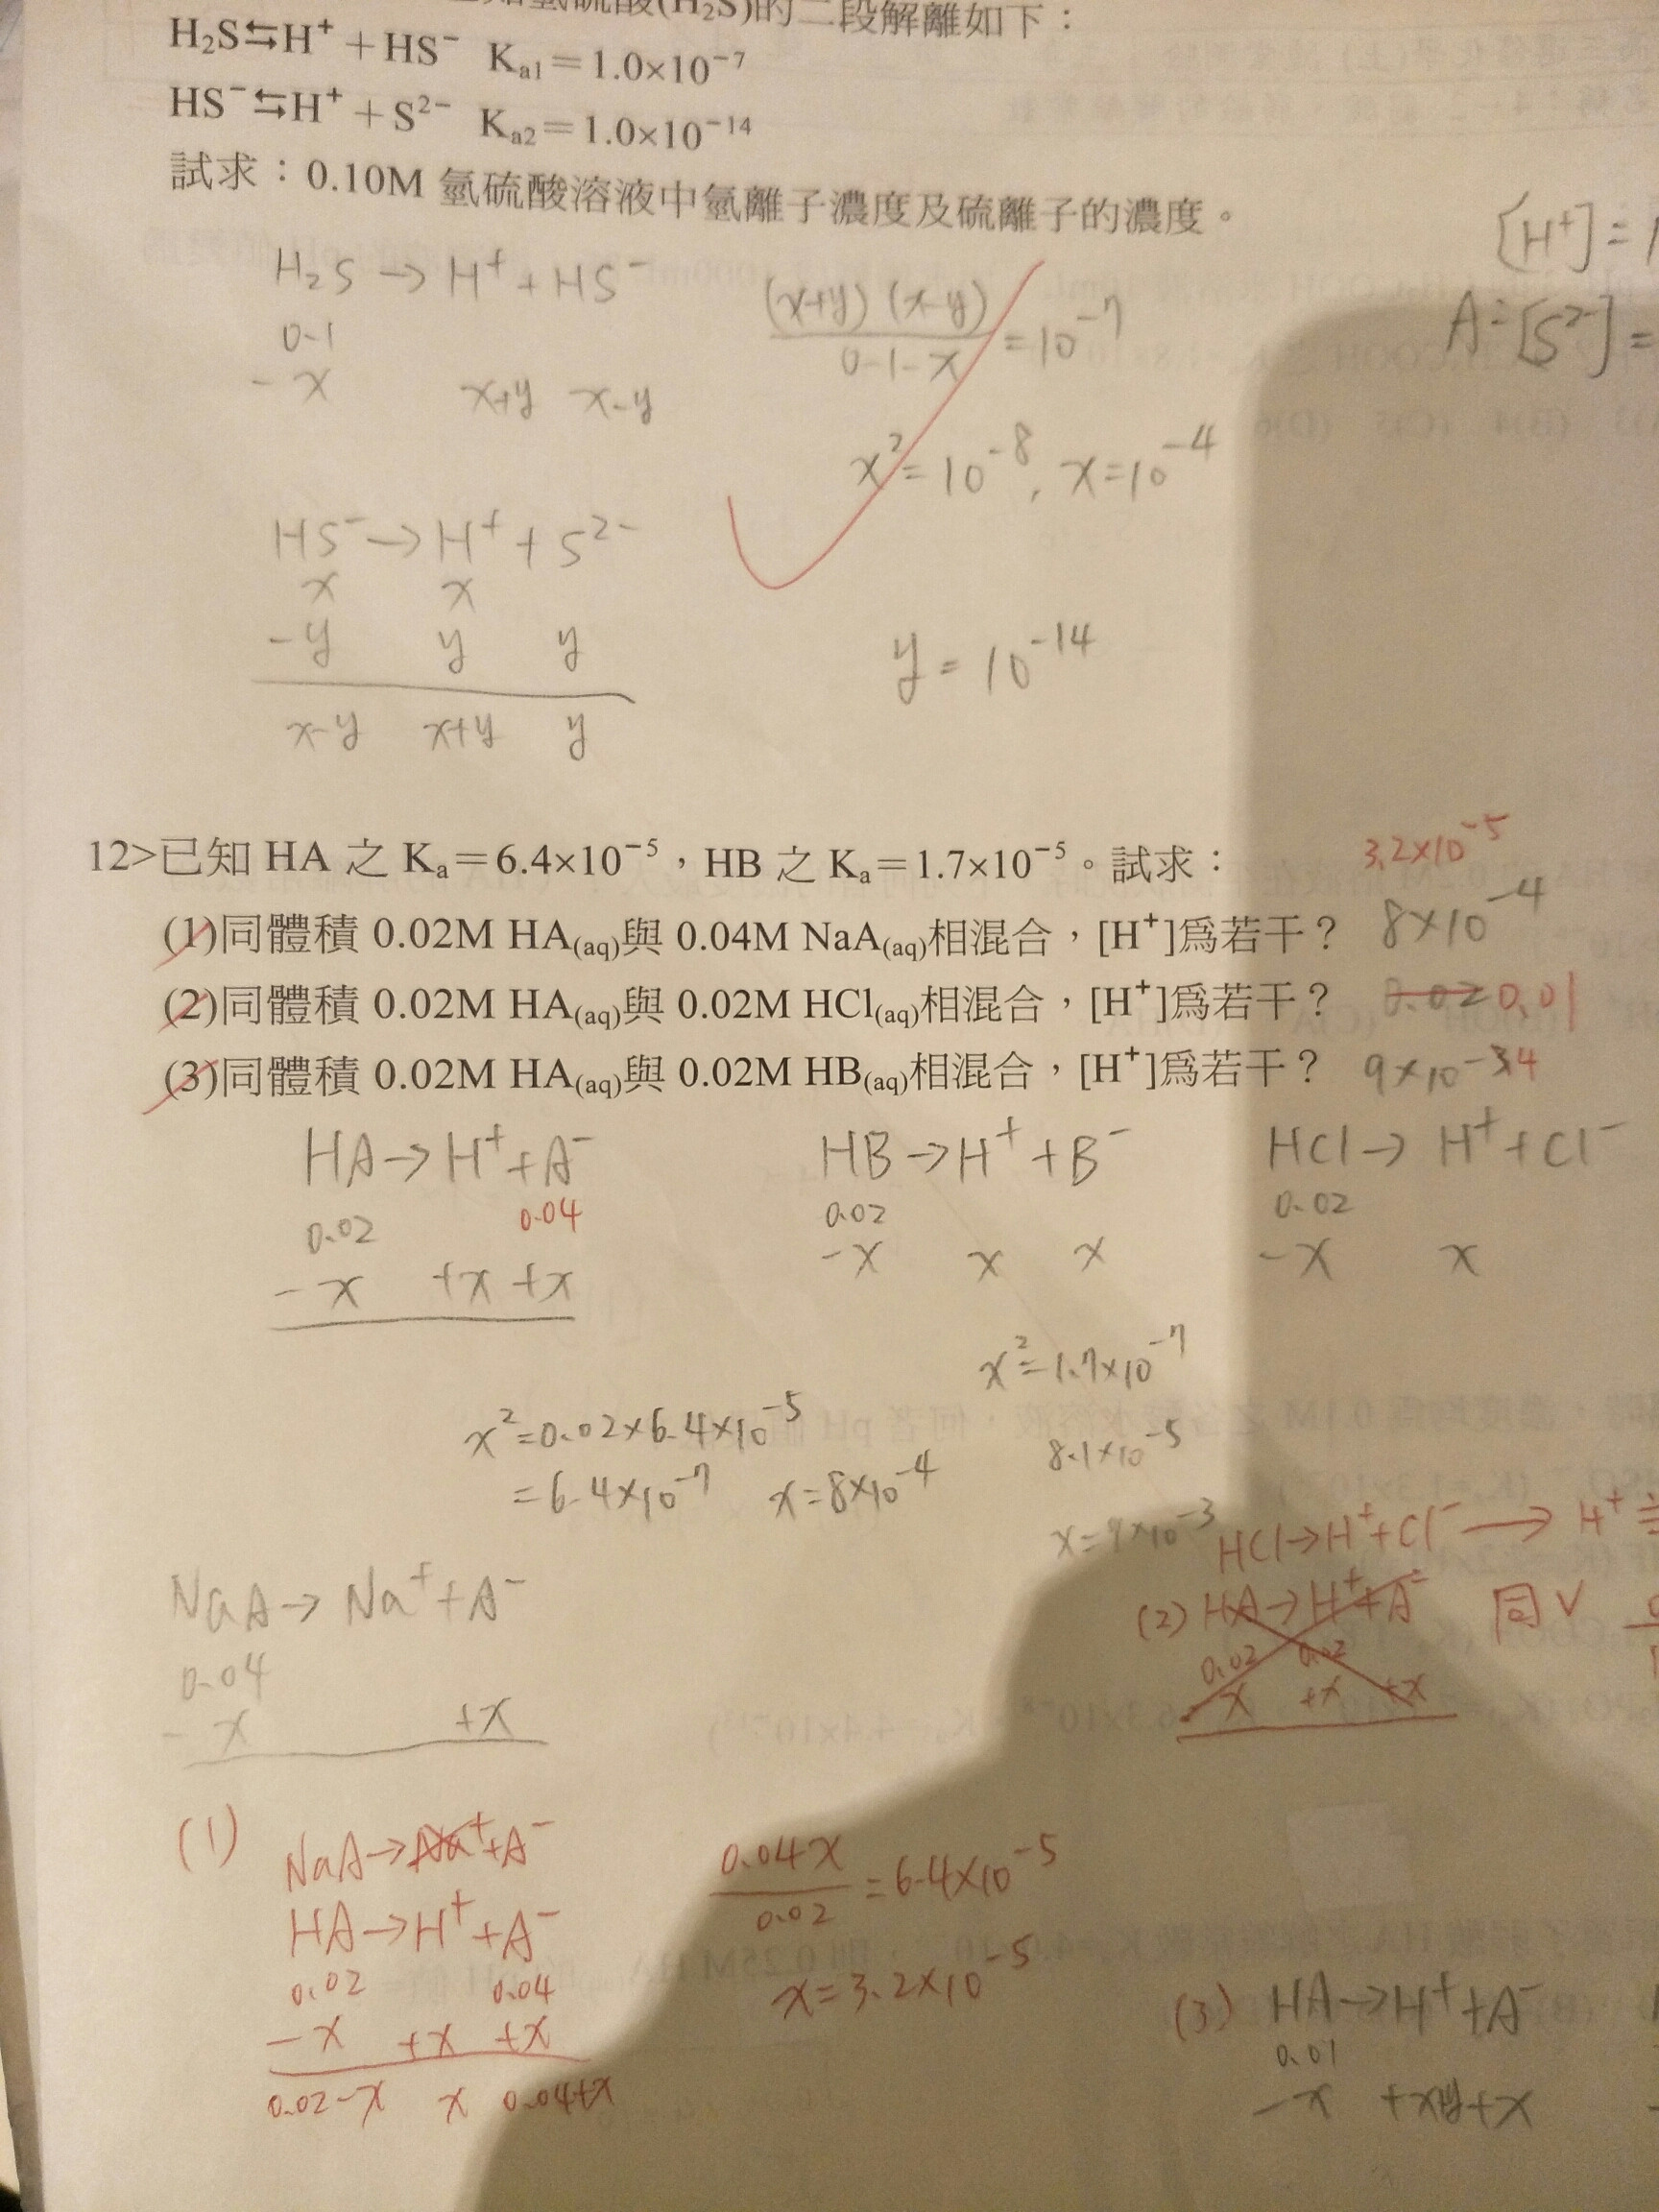 (H₂S)的二段解離如下：
H₂S⇆H⁺＋HS⁻ Kₐ₁＝1.0×10⁻⁷
HS⁻⇆H⁺＋S²⁻ Kₐ₂＝1.0×10⁻¹⁴
試求：0.10M 氫硫酸溶液中氫離子濃度及硫離子的濃度。
[H⁺]=
A= [S²⁻]=
H₂S → H⁺ + HS⁻
0.1
-x x+y x-y
(x+y) (x-y)
0.1-x
=10⁻⁷
x²=10⁻⁸, x=10⁻⁴
HS⁻ → H⁺ + S²⁻
x x
-y y y
x-y x+y y
y = 10⁻¹⁴
12>已知 HA 之 Kₐ＝6.4×10⁻⁵，HB 之 Kₐ＝1.7×10⁻⁵。試求：
3.2×10⁻⁵
(1)同體積 0.02M HA(aq)與 0.04M NaA(aq)相混合，[H⁺]爲若干？ 8×10⁻⁴
(2)同體積 0.02M HA(aq)與 0.02M HCl(aq)相混合，[H⁺]爲若干？ 0.02 0.01
(3)同體積 0.02M HA(aq)與 0.02M HB(aq)相混合，[H⁺]爲若干？ 9×10⁻⁴
HA → H⁺ + A⁻
0.02 0.04
-x +x +x
HB → H⁺ + B⁻
0.02
-x x x
HCl → H⁺ + Cl⁻
0.02
-x x
x²=1.7×10⁻⁷
x²=0.02×6.4×10⁻⁵
=6.4×10⁻⁷ x=8×10⁻⁴
8.1×10⁻⁵
x=9×10⁻³
HCl → H⁺ + Cl⁻ → H⁺
(2) HA → H⁺ + A⁻ 同V
0.02 0.02
x +x +x
NaA → Na⁺ + A⁻
0.04
-x +x
(1)
NaA → Na⁺ + A⁻
HA → H⁺ + A⁻
0.02 0.04
-x +x +x
0.02-x x 0.04+x
0.04x
0.02
=6.4×10⁻⁵
x=3.2×10⁻⁵
(3) HA → H⁺ + A⁻
0.01
-x +x +x